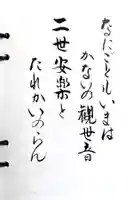 なにごともいまは
かないの観世音
二世安楽と
たれかいのらん